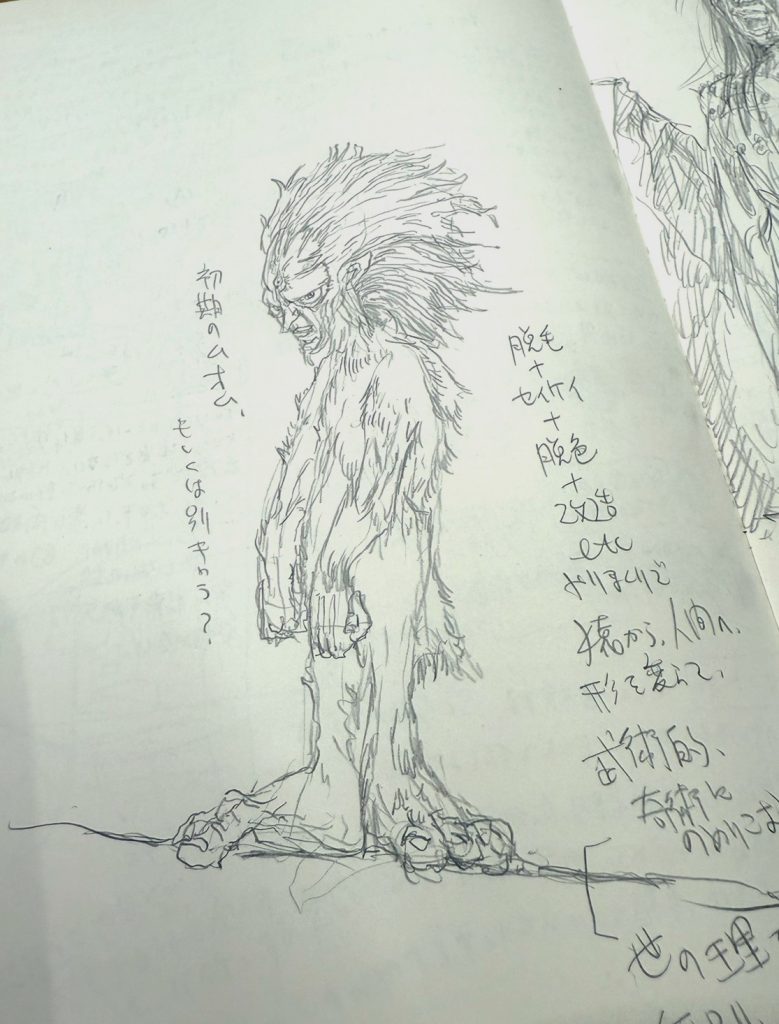 初期のムオム、
もしくは別キャラ?
脱毛
+
セイケイ
+
脱色
+
改造
etc
やりまくりで
猿から、人間へ、
形を変えて、
武術的、
奇術に
のめりこま
世の理